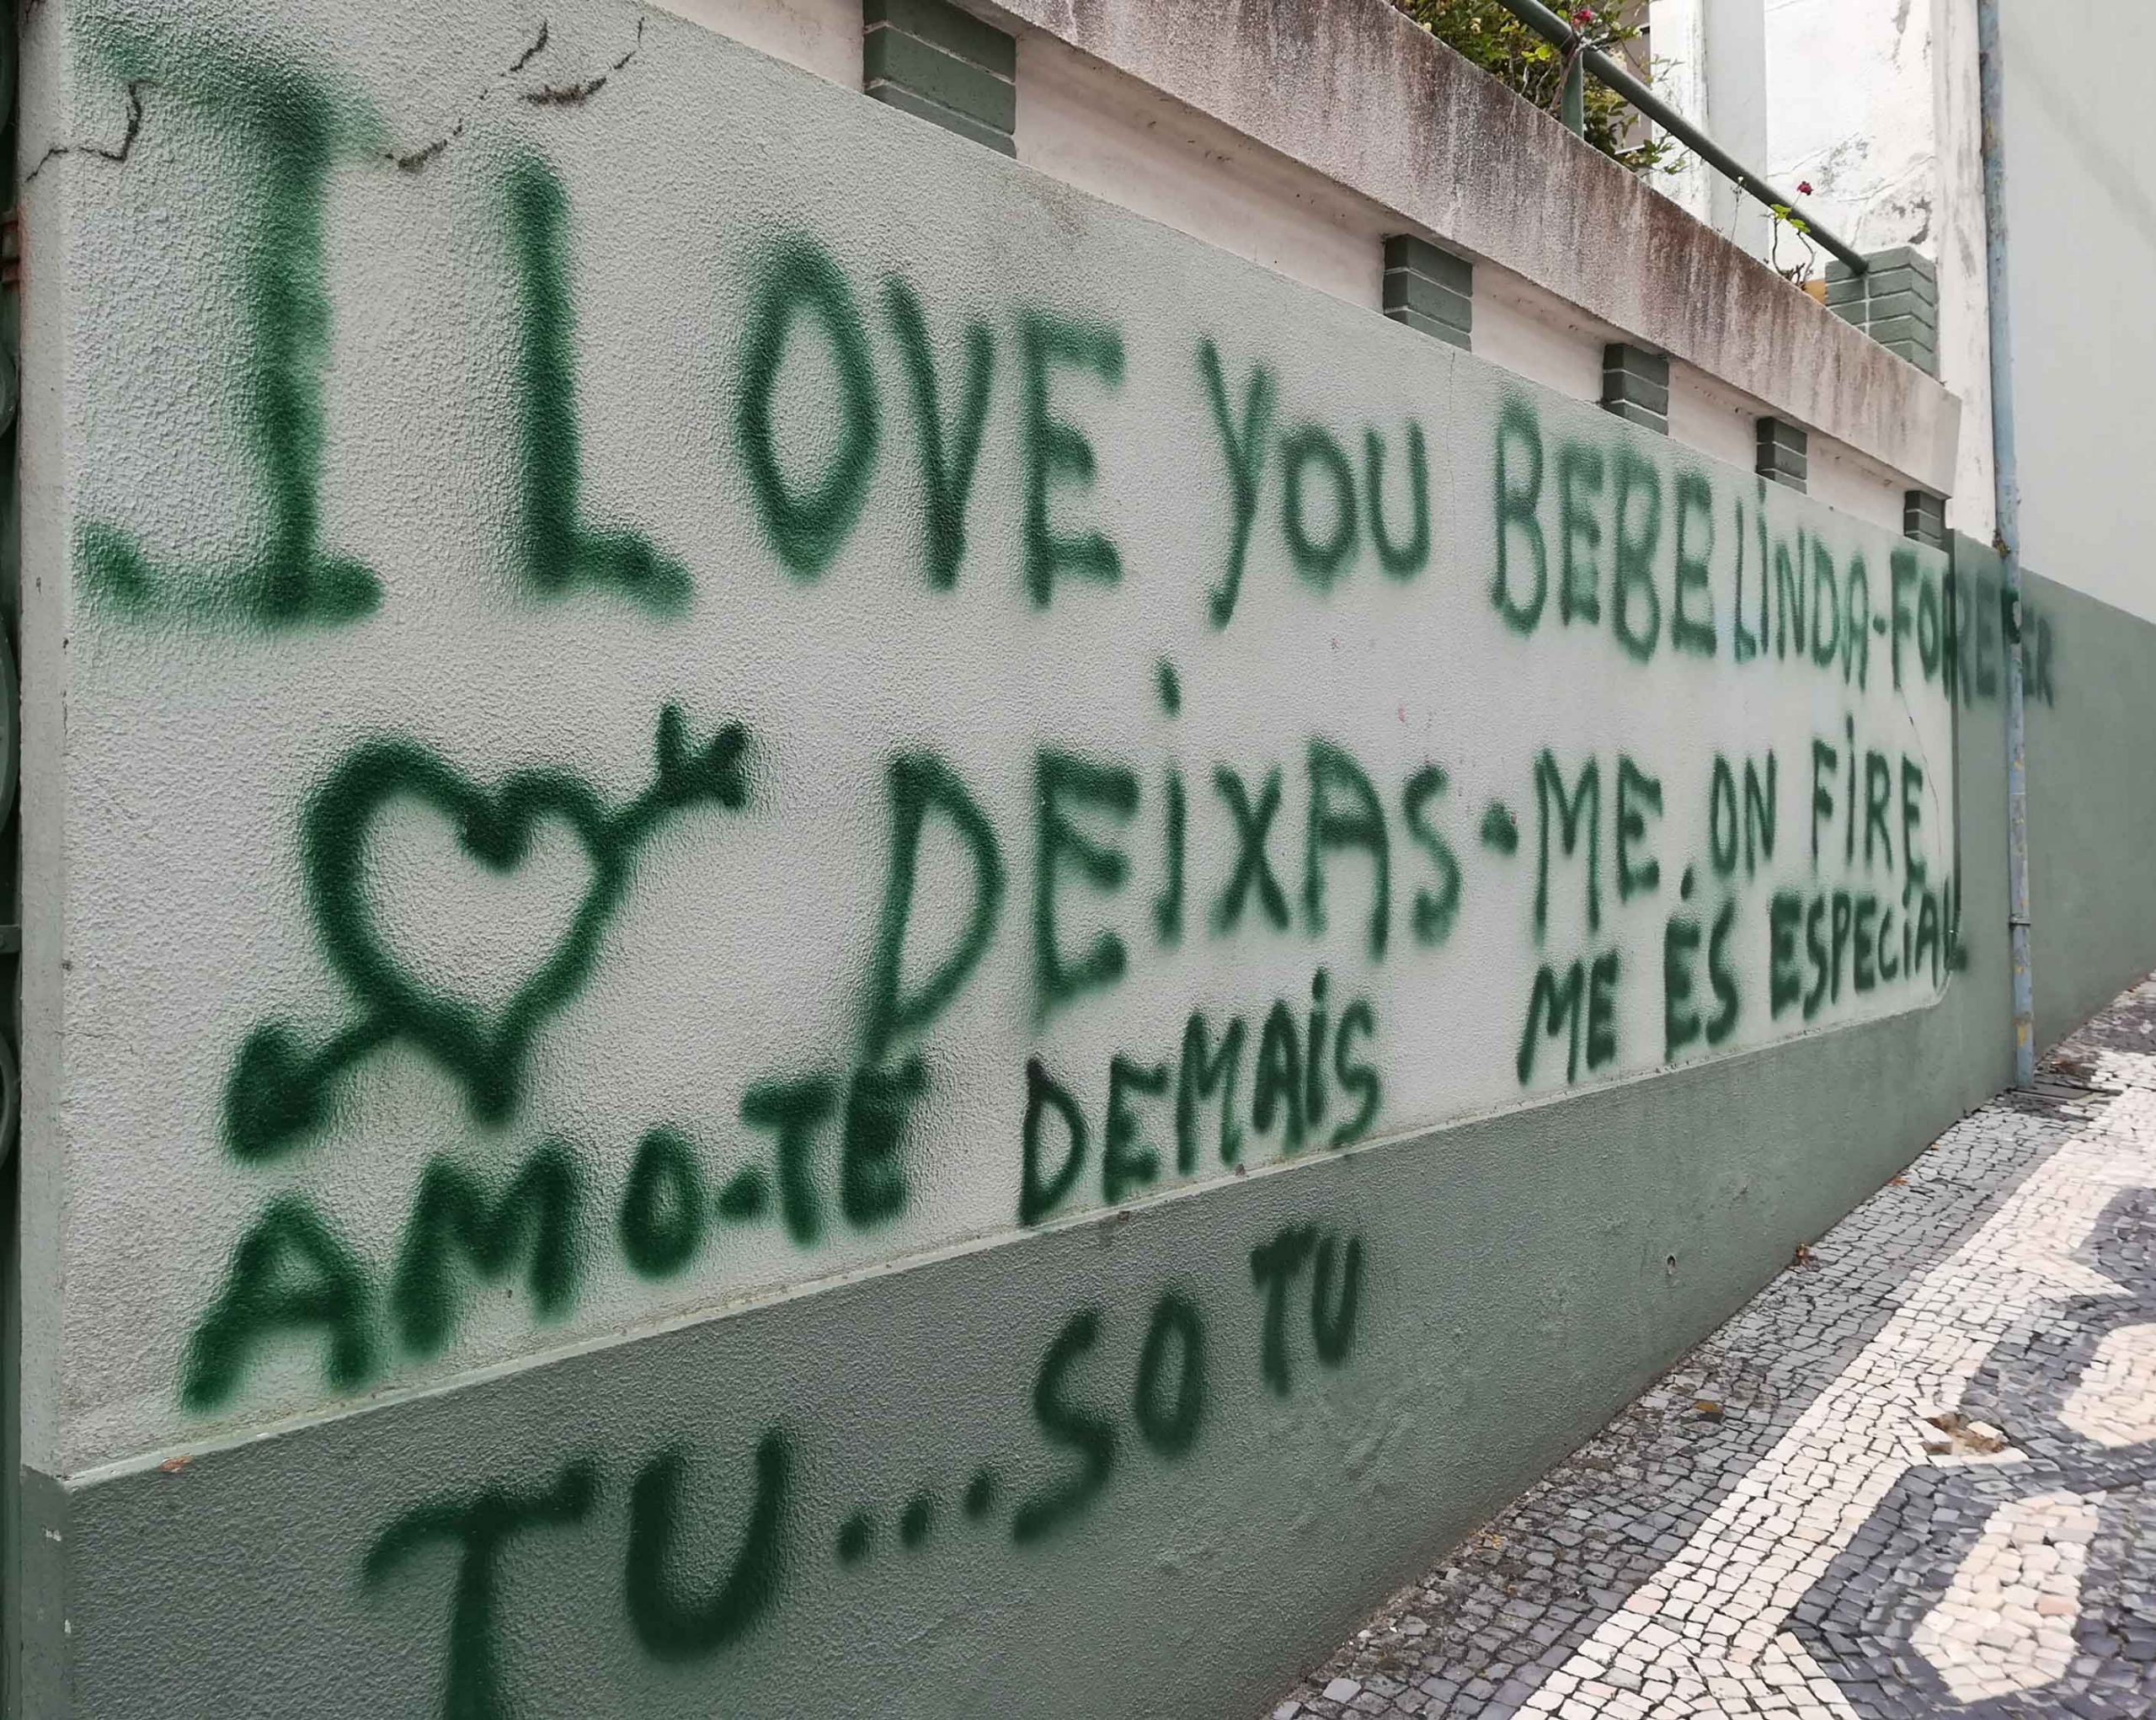 I LOVE YOU BEBE LiNDA-FORREVER
DEiXAS-ME ON FiRE
AMO-TE DEMAiS ME ÉS ESPECiAL
TU...SO TU